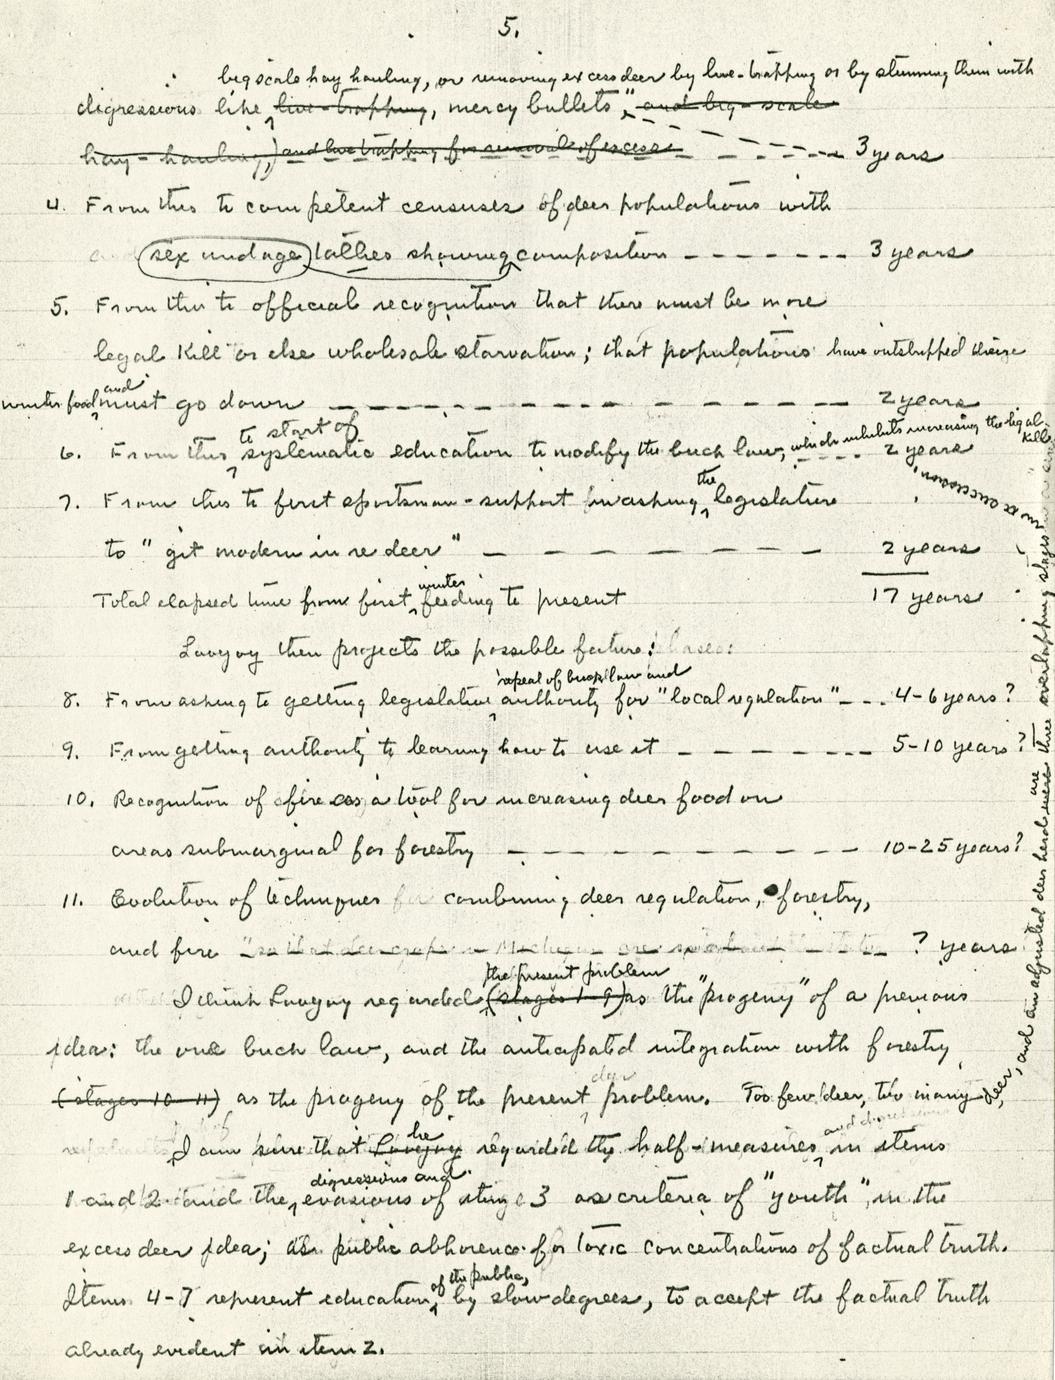 5.
big scale hay hauling, or removing excess deer by live-trapping or by stunning them with
digressions like live-trapping, mercy bullets", and big-scale
hay-hauling, and live trapping for removal of excess - - - - 3 years
4. From this to competent censuses of deer populations with
sex and age tallies showing composition - - - - - - - 3 years
5. From this to official recognition that there must be more
legal kill or else wholesale starvation; that populations have outstripped their
winter food and must go down - - - - - - - - - - 2 years
6. From this to start of systematic education to modify the buck law, which inhibits increasing the legal kill - - - - 2 years
7. From this to first sportsman-support in asking the legislature
to "git modern in re deer" - - - - - - - 2 years
Total elapsed time from first winter feeding to present 17 years
Lovejoy then projects the possible future:
8. From asking to getting legislative repeal of buck law and authority for "local regulation" - - - 4-6 years?
9. From getting authority to learning how to use it - - - - - - 5-10 years?
10. Recognition of fire as a tool for increasing deer food on
areas submarginal for forestry - - - - - - - - 10-25 years?
11. Evolution of techniques for combining deer regulation, forestry,
and fire ? years
I think Lovejoy regarded the present problem (stages 1-9) as the "progeny" of a previous
idea: the one buck law, and the anticipated integration with forestry
(stages 10-11) as the progeny of the present deer problem. Too few deer, too many deer, and an adjusted deer herd were are three overlapping stages in a succession.
I am sure that Lovejoy he regarded the half-measures in items
1 and 2 and the digressions and evasions of stage 3 as criteria of "youth", in the
excess deer idea; as public abhorence for toxic concentrations of factual truth.
Items 4-7 represent education of the public, by slow degrees, to accept the factual truth
already evident in item 2.